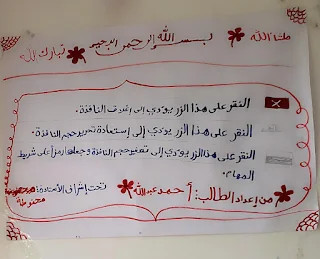 ما شاء الله
بسم الله الرحمن الرحيم
تبارك الله
النقر على هذا الزر يؤدي إلى إغلاق النافذة.
النقر على هذا الزر يؤدي إلى إستعادة تحرير حجم النافذة.
النقر على هذا الزر يؤدي إلى تصغير حجم النافذة وجعلها رمز أعلى شريط
المهام.
من إعداد الطالب: أحمد عبدالله
تحت إشراف الأستاذة: